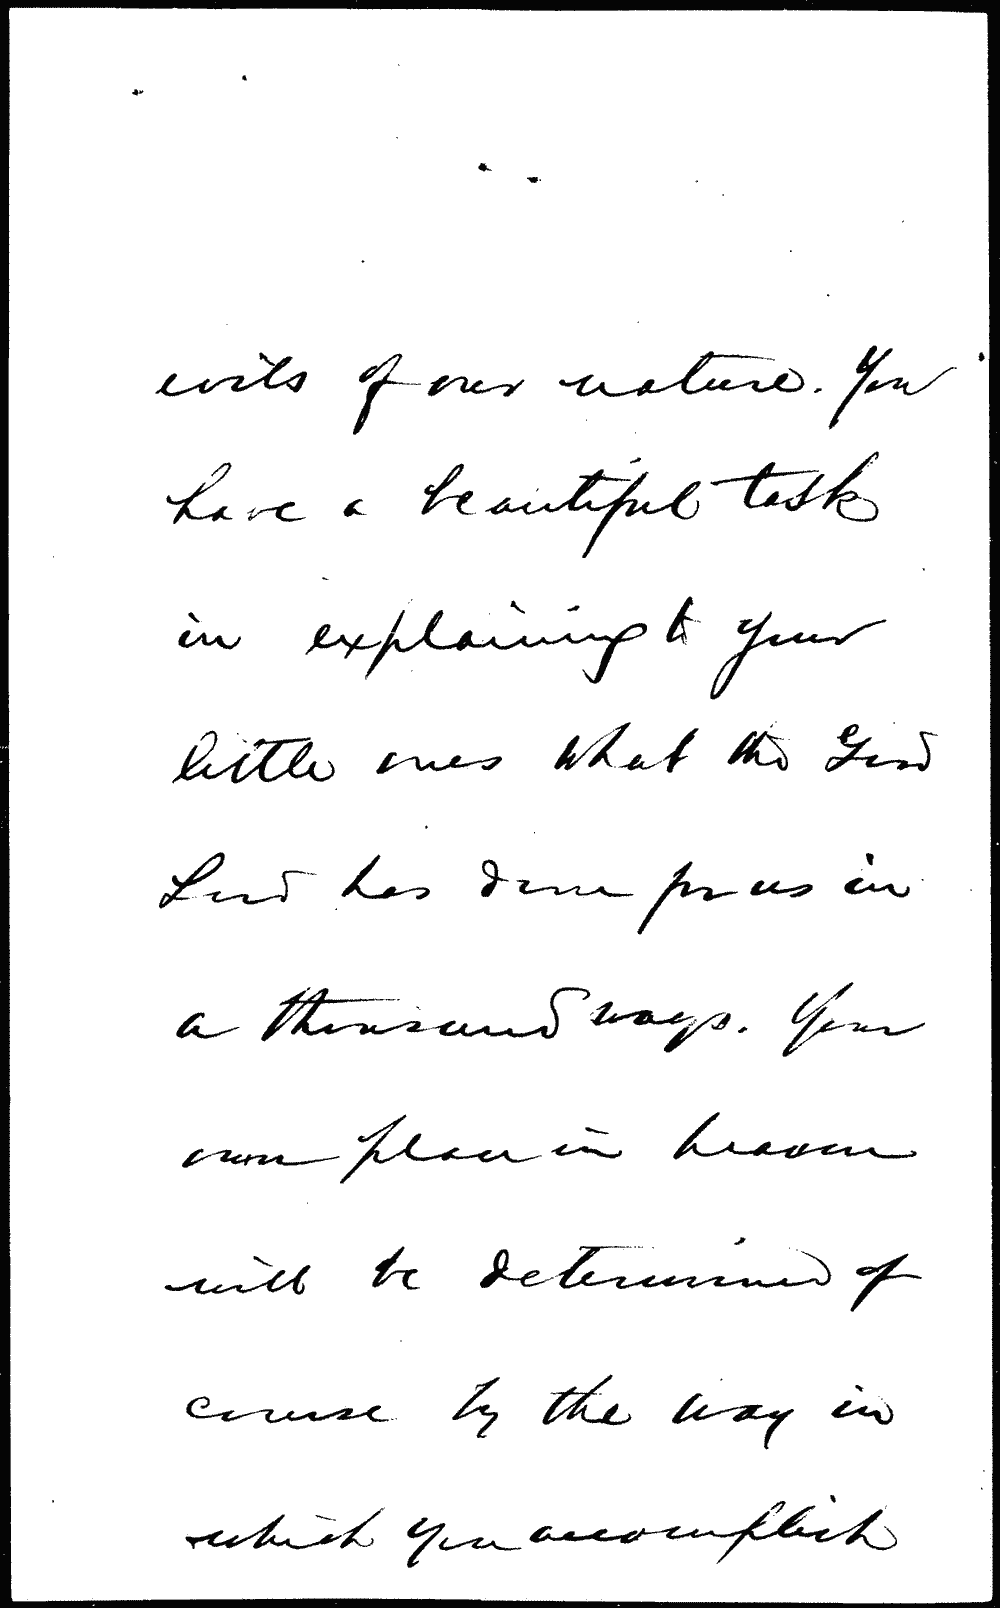 evils of our nature. You
have a beautiful task
in explaining to your
little ones what the Good
Lord has done for us in
a thousand ways. Your
own place in heaven
will be determined of
course by the way in
which you accomplish